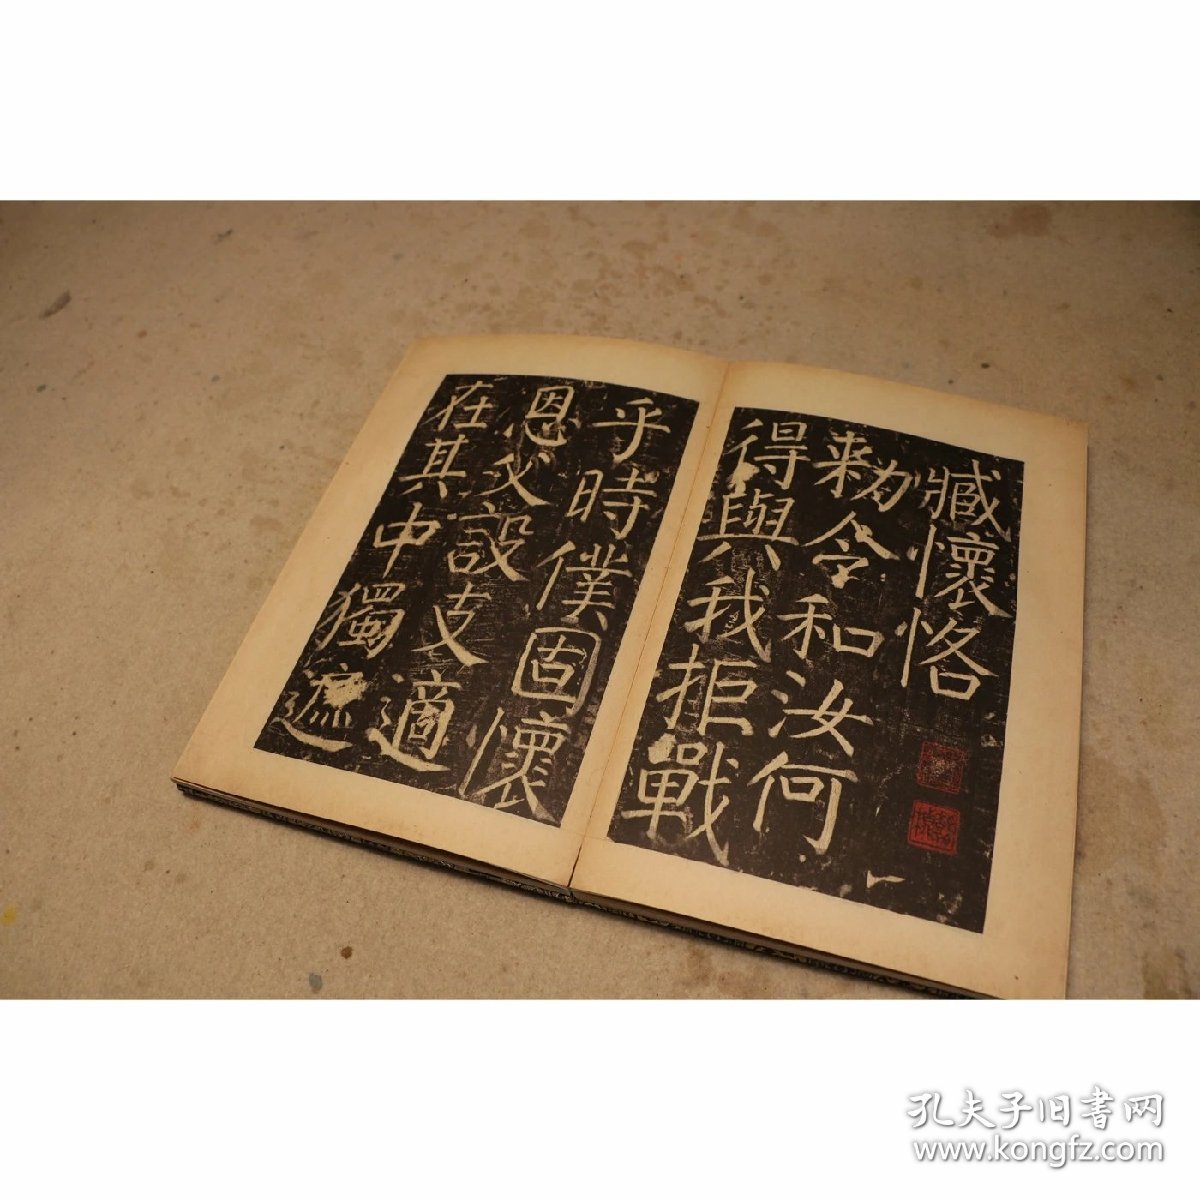 臧懷恪
勑令和汝何
得與我拒戰
乎時僕固懷
恩父設支適
在其中獨遮
孔夫子旧书网
www.kongfz.com